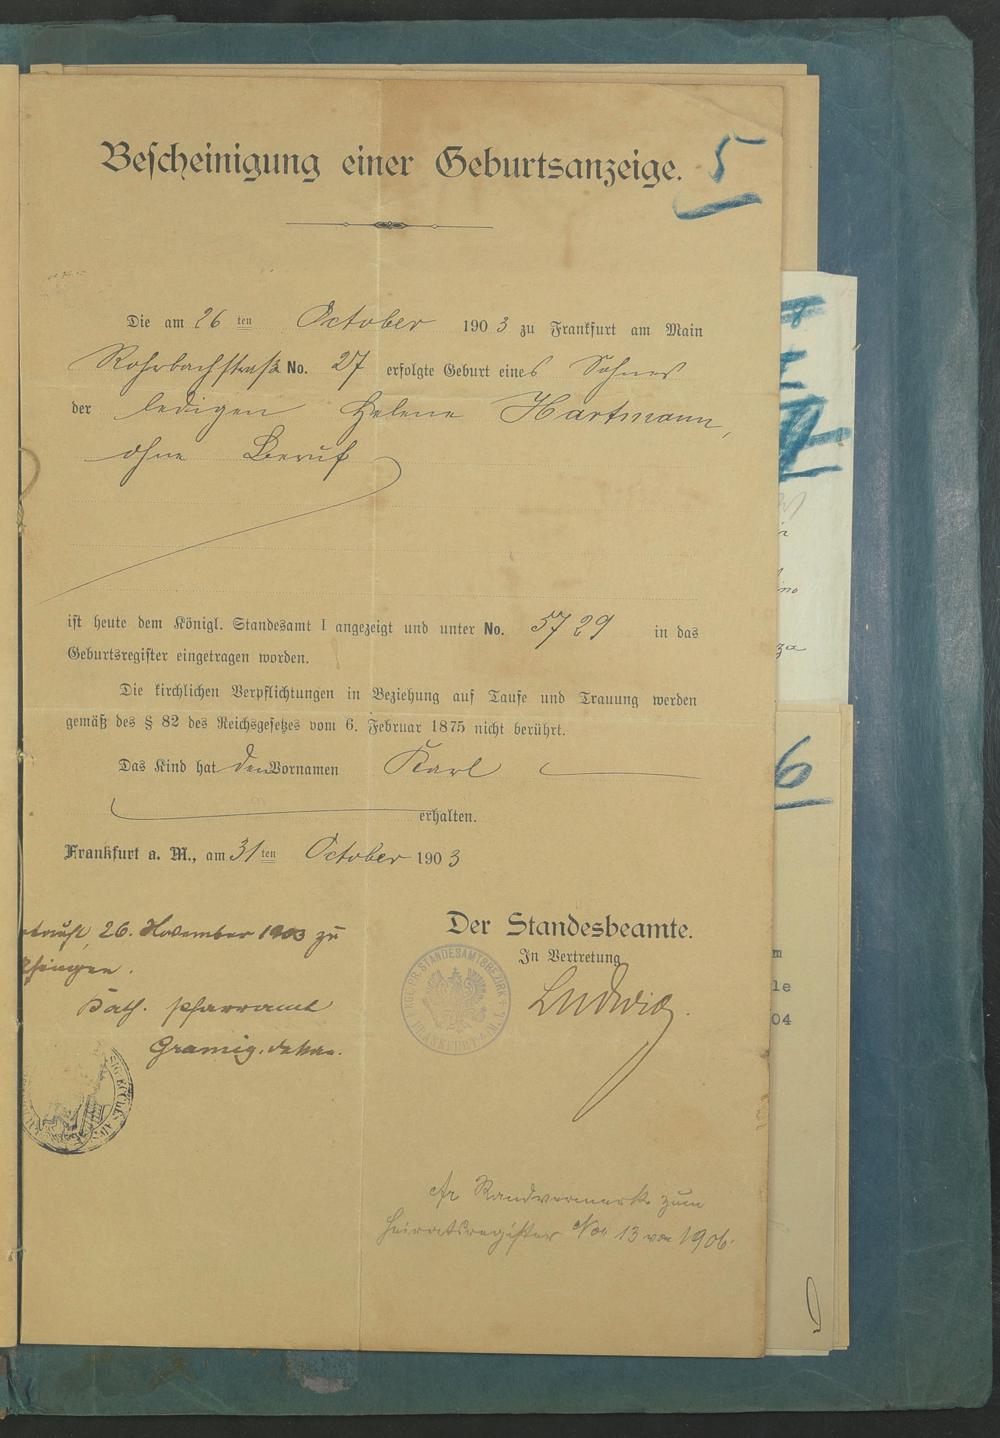 Bescheinigung einer Geburtsanzeige.
5
Die am 26 ten October 1903 zu Frankfurt am Main
Rohrbachstraße No. 27 erfolgte Geburt eines Sohnes
der ledigen Helene Hartmann,
ohne Beruf
ist heute dem Königl. Standesamt I angezeigt und unter No. 5729 in das
Geburtsregister eingetragen worden.
Die kirchlichen Verpflichtungen in Beziehung auf Taufe und Trauung werden
gemäß des § 82 des Reichsgesetzes vom 6. Februar 1875 nicht berührt.
Das Kind hat den Vornamen Karl
erhalten.
Frankfurt a. M., am 31 ten October 1903
Der Standesbeamte.
In Vertretung
Ludwig.
KGL. PR. STANDESAMTSBEZIRK I
FRANKFURT A. M.
26. November 1903 zu
Kath. Pfarramt
Gramig, Dekan.
Randvermerk zum
Heiratsregister No. 13 von 1906.
6
m
le
04